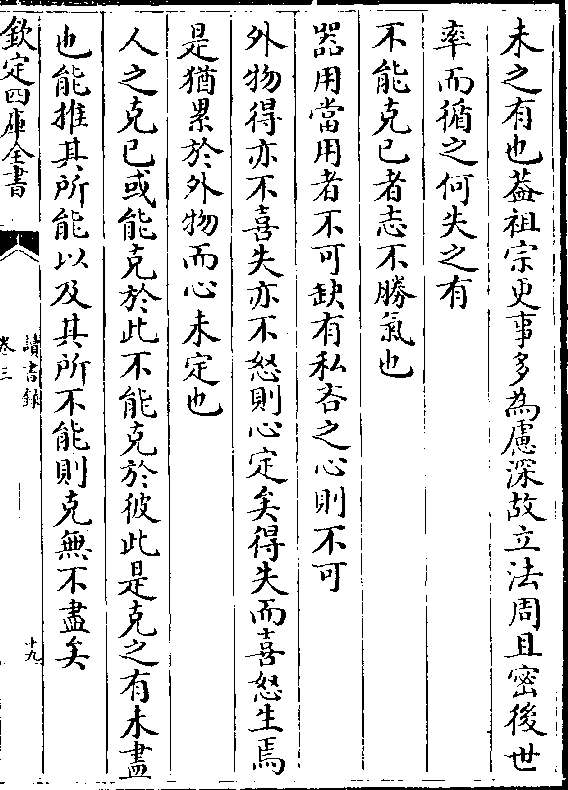 未之有也葢祖宗更事多為慮深故立法周且密後世
率而循之何失之有
不能克己者志不勝氣也
器用當用者不可缺有私吝之心則不可
外物得亦不喜失亦不怒則心定矣得失而喜怒生焉
是猶累於外物而心未定也
人之克已或能克於此不能克於彼此是克之有未盡
也能推其所能以及其所不能則克無不盡矣
欽定四庫全書
讀書録
卷三
十九